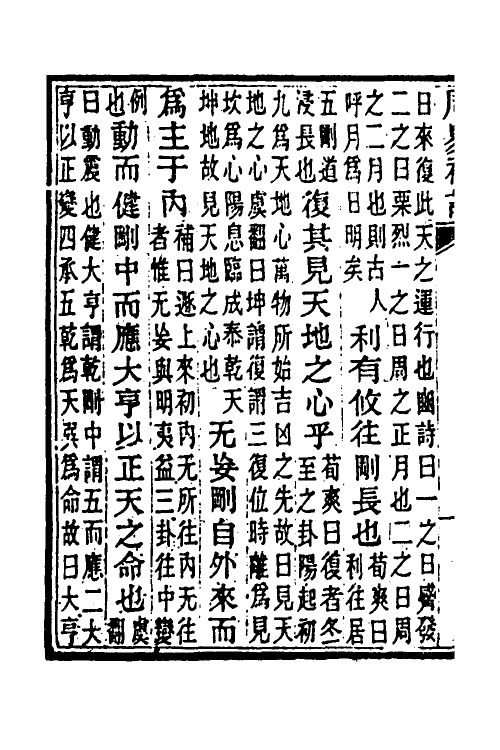 日來復此天之運行也豳詩曰一之日觱發
二之日栗烈一之日周之正月也二之日周
之二月也則古人
呼月爲日明矣
利有攸往剛長也
荀爽曰
利往居
五剛道
浸長也
復其見天地之心乎
荀爽曰復者冬
至之卦陽起初
九爲天地心萬物所始吉凶之先故曰見天
地之心虞翻曰坤謂復謂三復位時離爲見
坎爲心陽息臨成泰乾天
坤地故見天地之心也
无妄剛自外來而
爲主于內
補曰遂上來初內无所往內无往
者惟无妄與明夷益三卦往中變
例
也
動而健剛中而應大亨以正天之命也
虞
翻
曰動震也健大亨謂乾剛中謂五而應二大
亨以正變四承五乾爲天巽爲命故曰大亨